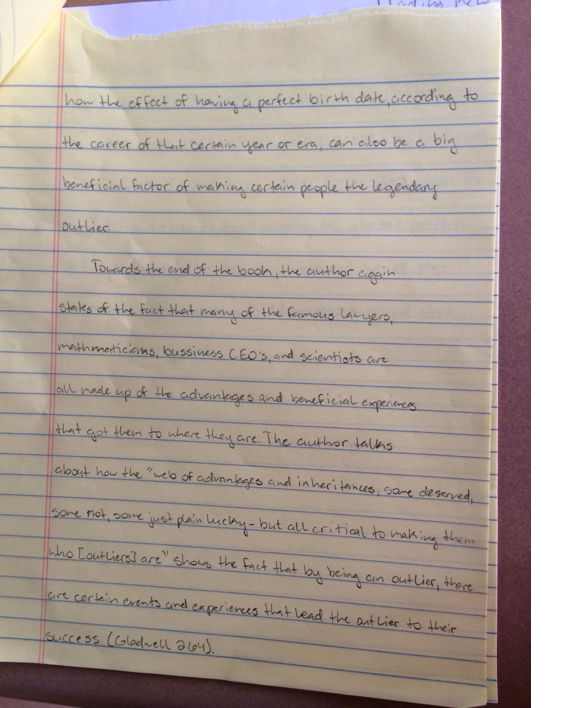 how the effect of having a perfect birth date, according to
the career of that certain year or era, can also be a big
beneficial factor of making certain people the legendary
outlier.
Towards the end of the book, the author again
states of the fact that many of the famous lawyers,
mathmeticians, bussiness CEO's, and scientists are
all made up of the advantages and beneficial experiences
that got them to where they are. The author talks
about how the "web of advantages and inheritances, some deserved,
some not, some just plain lucky - but all critical to making them
who [outliers] are" shows the fact that by being an outlier, there
are certain events and experiences that lead the outlier to their
success (Gladwell 264).